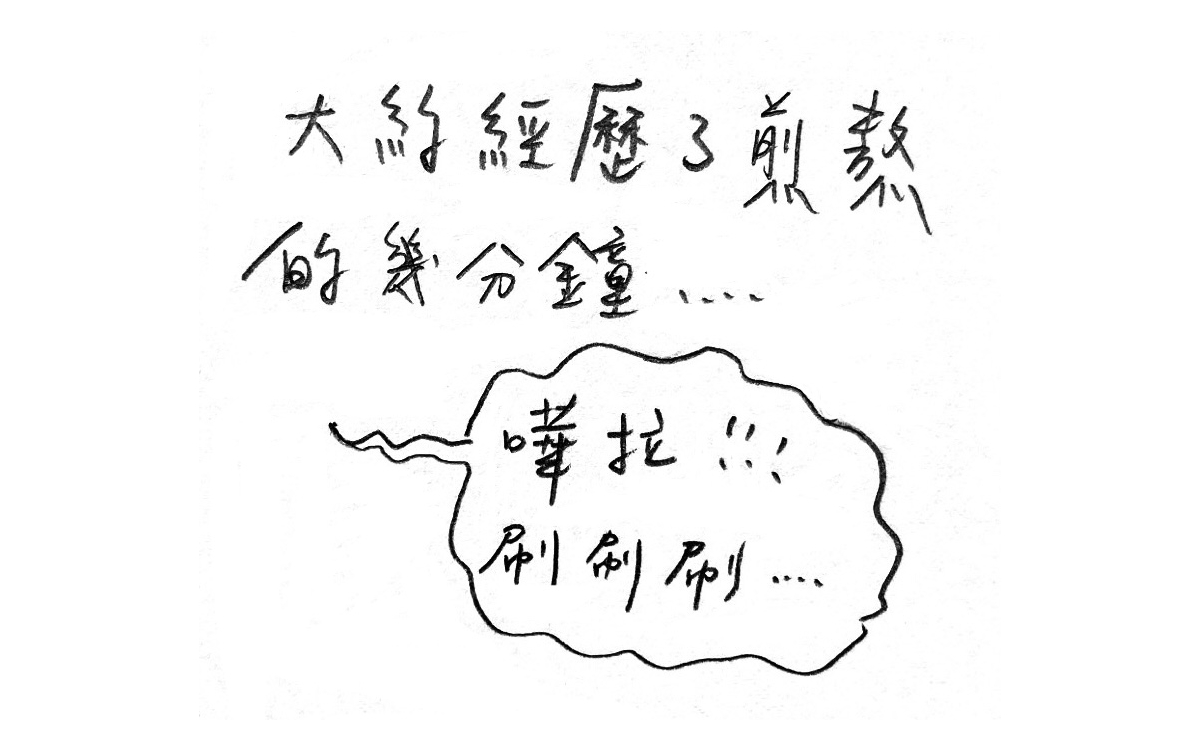 大約經歷了煎熬
的幾分鐘.....
嘩拉!!!
刷刷刷....